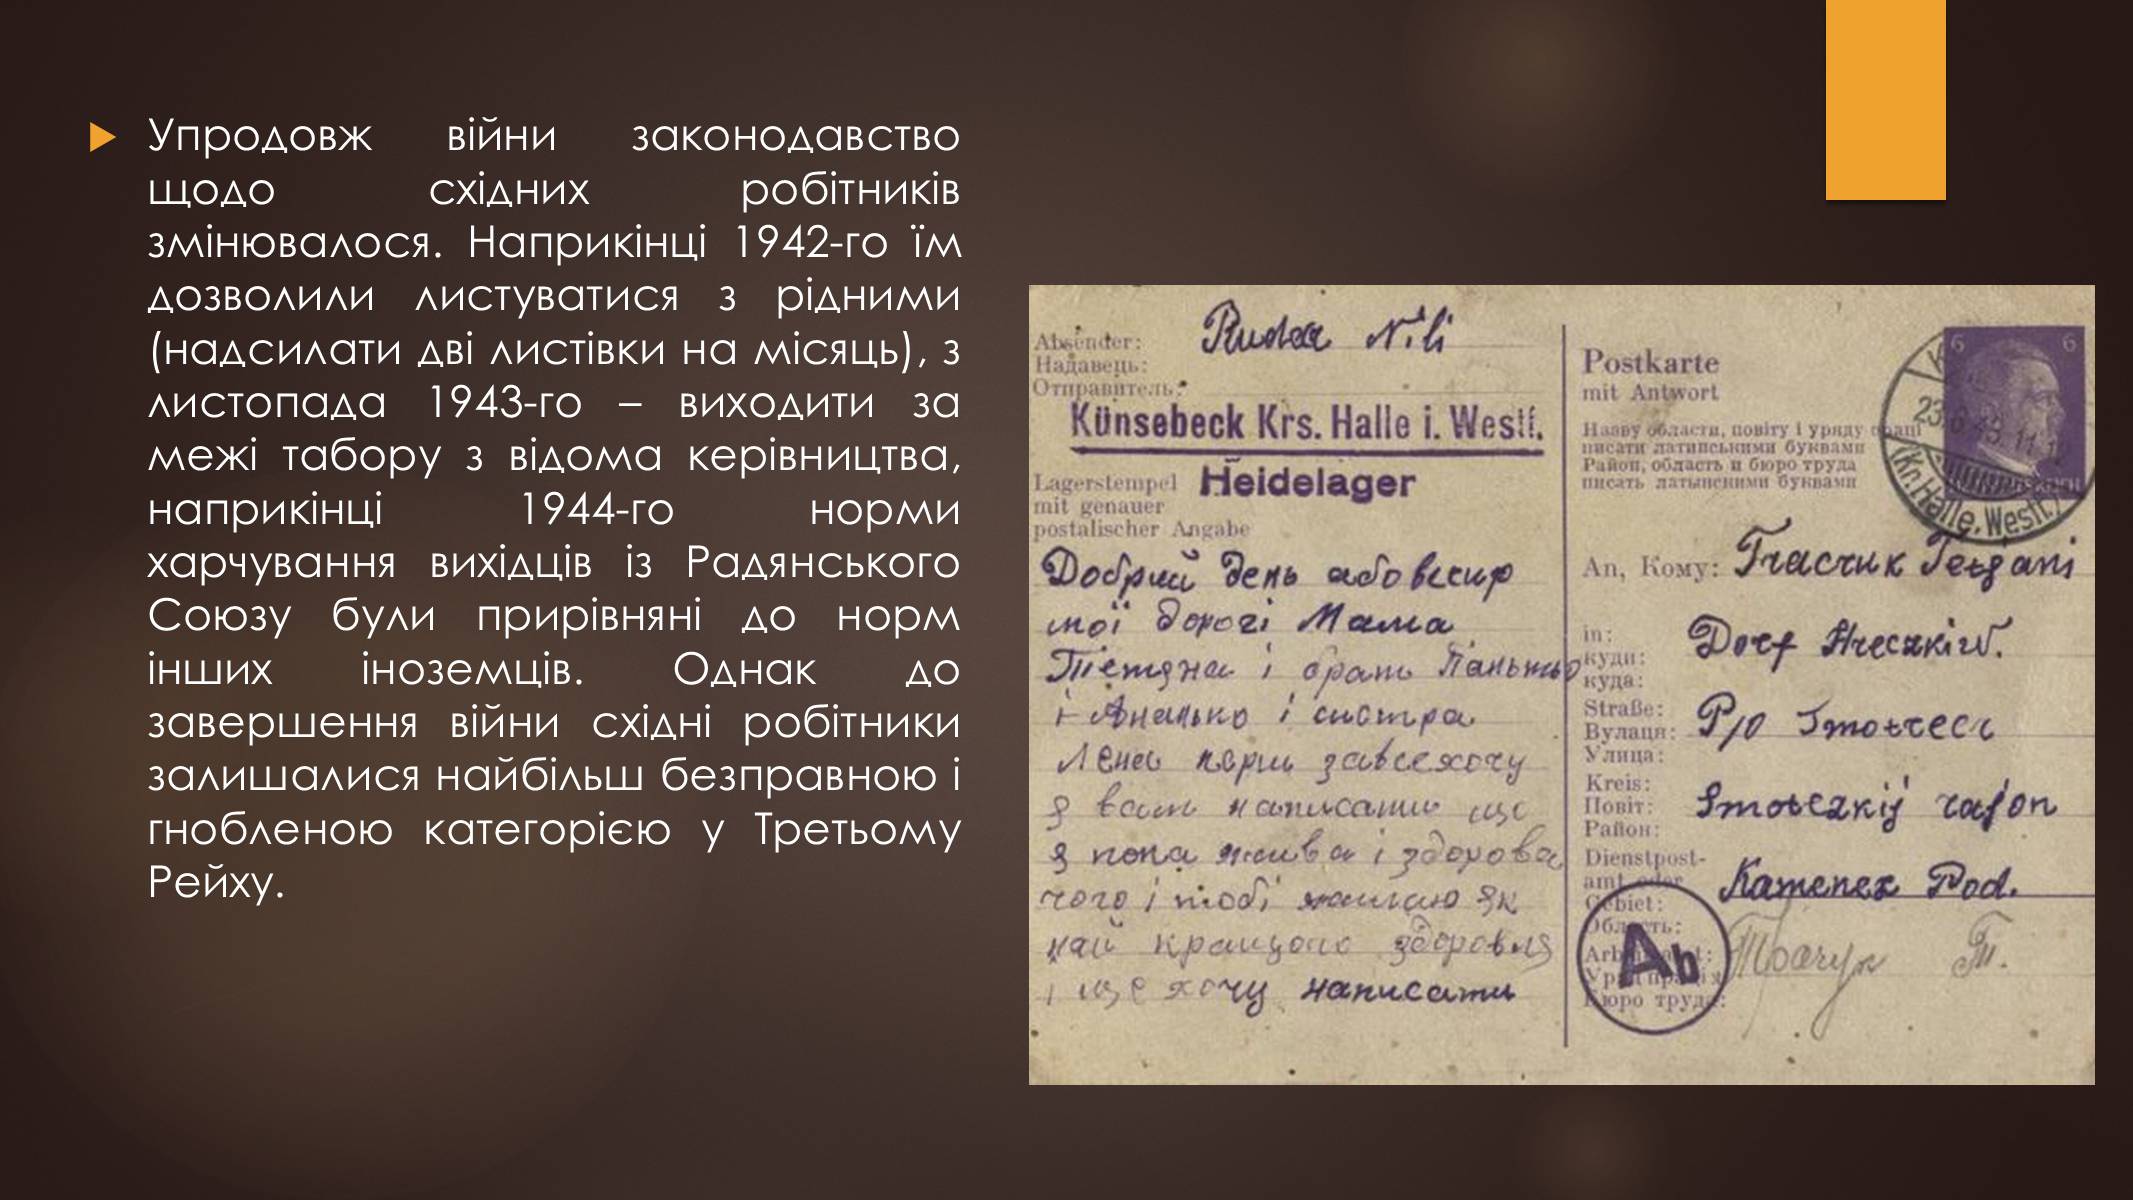 Упродовж війни законодавство
щодо східних робітників
змінювалося. Наприкінці 1942-го їм
дозволили листуватися з рідними
(надсилати дві листівки на місяць), з
листопада 1943-го – виходити за
межі табору з відома керівництва,
наприкінці 1944-го норми
харчування вихідців із Радянського
Союзу були прирівняні до норм
інших іноземців. Однак до
завершення війни східні робітники
залишалися найбільш безправною і
гнобленою категорією у Третьому
Рейху.
Absender:
Надавець:
Отправитель:
Ruda Nili
Künsebeck Krs. Halle i. Westf.
Lagerstempel
mit genauer
postalischer Angabe
Heidelager
Добрий день або
мої дорогі Мама
і брат
і Ананько і систра
Лена
я вам написати що
я пока жива і здорова
чого і тобі желаю як
най кращого здоровля
і ще хочу написати
Postkarte
mit Antwort
Назву области, повіту і уряду праці
писати латинськими буквами
Район, область и бюро труда
писать латынскими буквами
6 6
(Kr. Halle, Westf.)
An, Кому:
in:
куди:
куда:
Dorf
Straße:
Вулаця:
Улица:
P/o
Kreis:
Повіт:
Район:
rajon
Dienstpost-
amt oder
Gebiet:
Область:
Kamenez Pod.
Ab
Бюро труда:
Т.